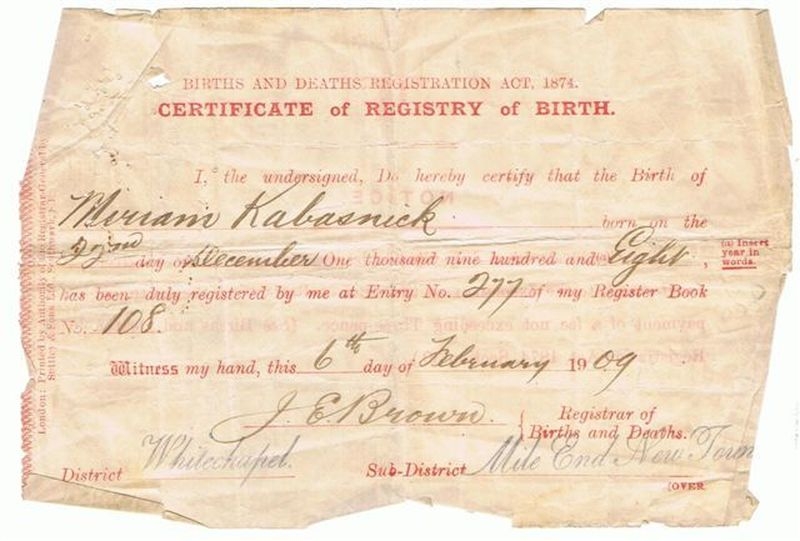 BIRTHS AND DEATHS REGISTRATION ACT, 1874.
CERTIFICATE of REGISTRY of BIRTH.
I, the undersigned, Do hereby certify that the Birth of
Miriam Kabasnick born on the
22nd day of December One thousand nine hundred and (a) Eight,
(a) Insert
year in
words.
has been duly registered by me at Entry No. 277 of my Register Book
No. 108.
Witness my hand, this 6th day of February 1909
J. E. Brown. { Registrar of
Births and Deaths.
District Whitechapel. Sub-District Mile End New Town
[OVER
London: Printed by Authority of the Registrar-General